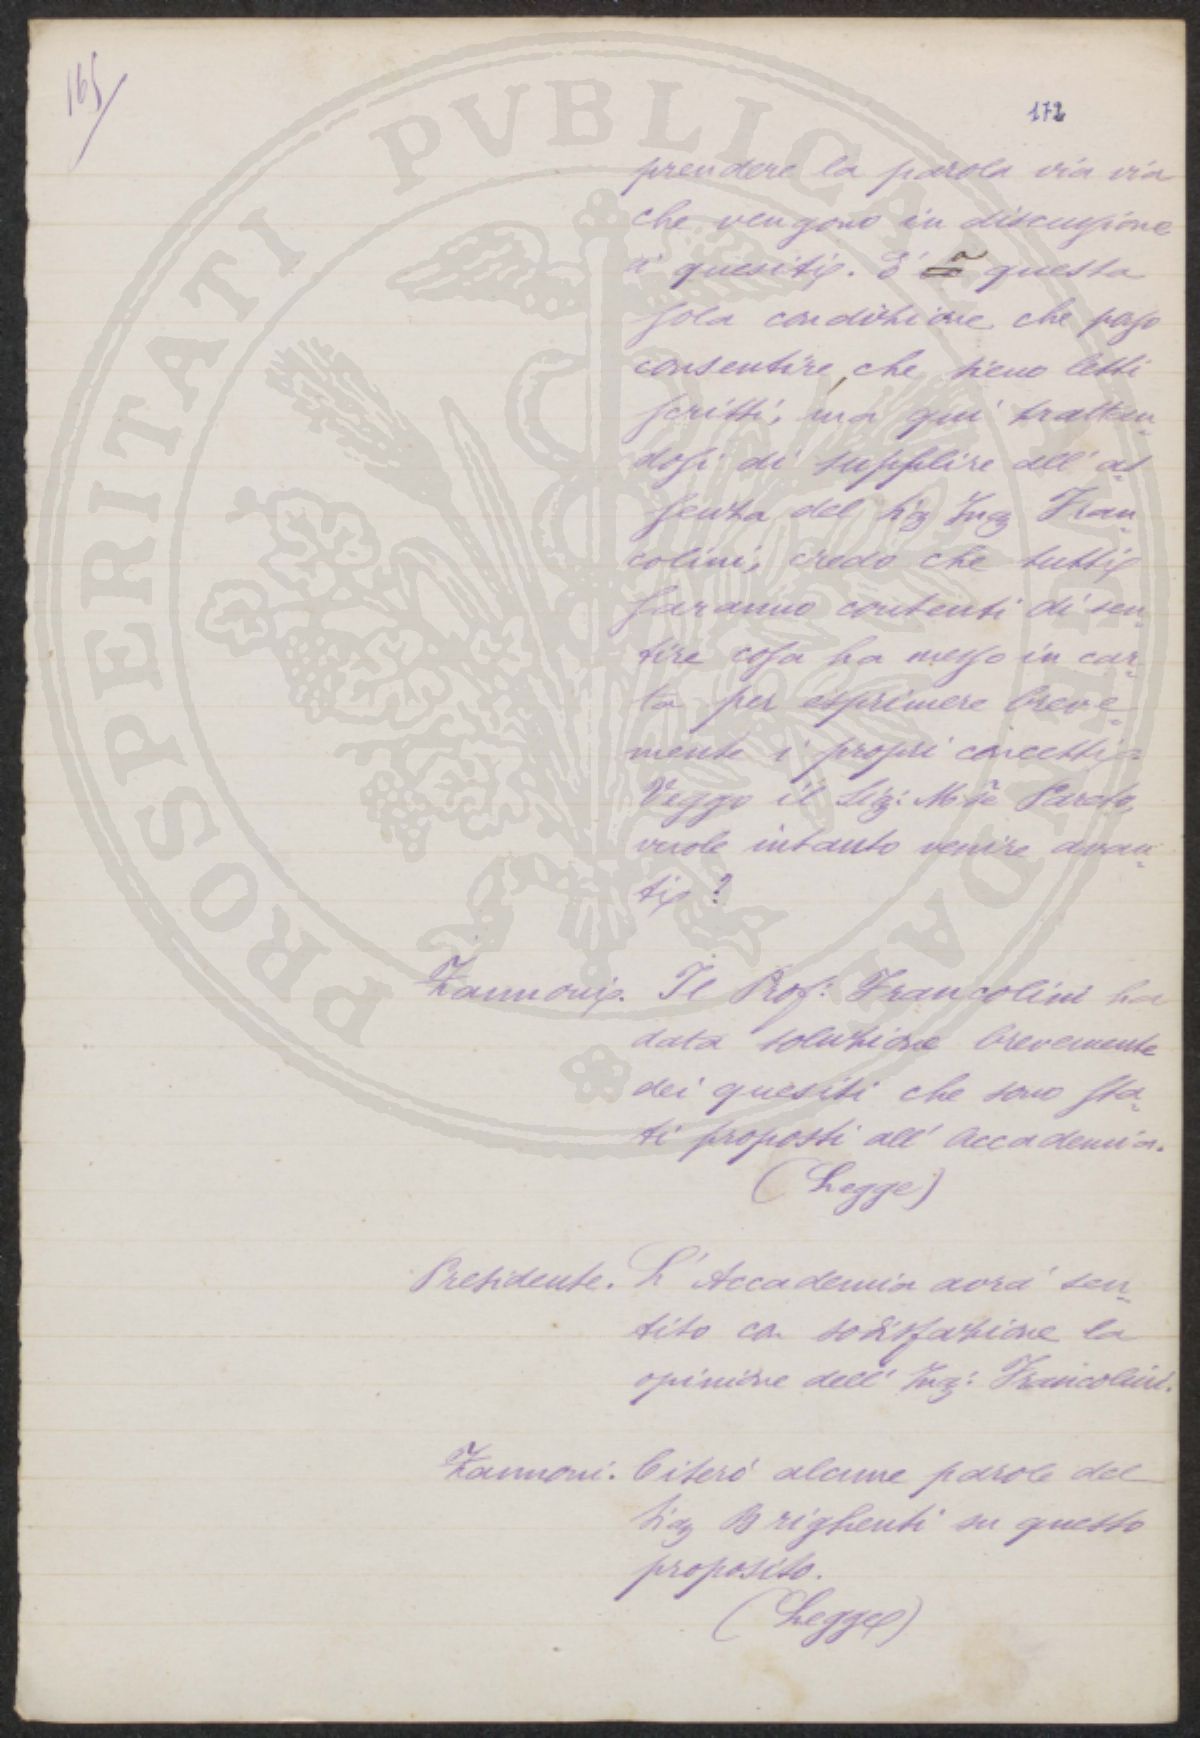 165
172
prendere la parola via via
che vengono in discussione
i quesiti. E' a questa
sola condizione che posso
consentire che sieno letti
scritti, ma qui trattan-
dosi di supplire all'as-
senza del Sig Ing Fran-
colini, credo che tutti
saranno contenti di sen-
tire cosa ha messo in car-
ta per esprimere breve-
mente i propri concetti.
Veggo il Sig: Mse Pareto,
vuole intanto venire avan-
ti?
Zannoni. Il Prof: Francolini ha
data soluzione brevemente
dei quesiti che sono sta-
ti proposti all'Accademia.
(Legge)
Presidente. L'Accademia avrà sen-
tito con sodisfazione la
opinione dell'Ing: Francolini.
Zannoni. Citerò alcune parole del
Sig Brighenti su questo
proposito.
(Legge)
PROSPERITATI PVBLICAE AVGENDAE